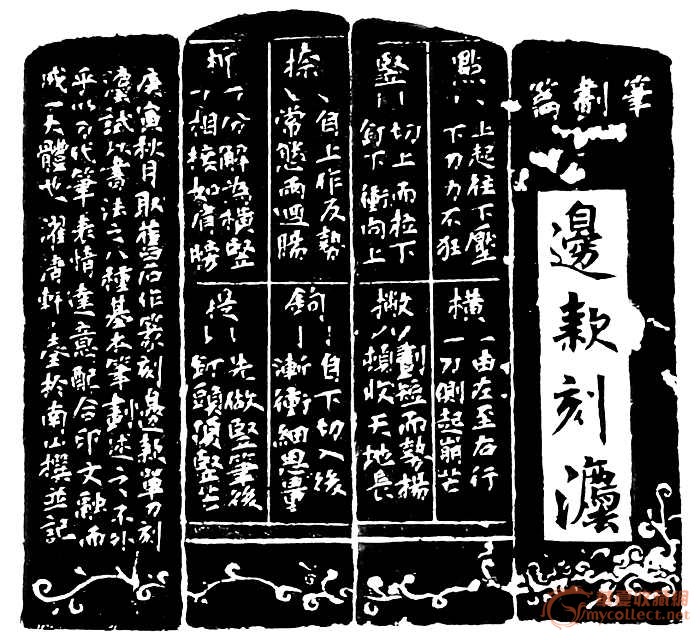 筆劃篇
邊款刻灋
點
上起往下壓
下刀力不狂
橫
由左至右行
一刀側起崩芒
竪
切上而拉下
釘下衝向上
撇
劃短而勢楊
頓收天地長
捺
自上作反勢
常態而迴腸
鉤
自下切入後
漸衝細思量
折
分解為橫竪
相接如肩膀
提
先做竪筆後
釘頭須竪芒
庚寅秋月取舊石作篆刻邊款單刀刻
灋試以書法之八種基本筆劃述之不外
乎以刀代筆表情達意配合印文融而
成一大體也 軒 於南山撰並記
華夏收藏網
mycollect.net